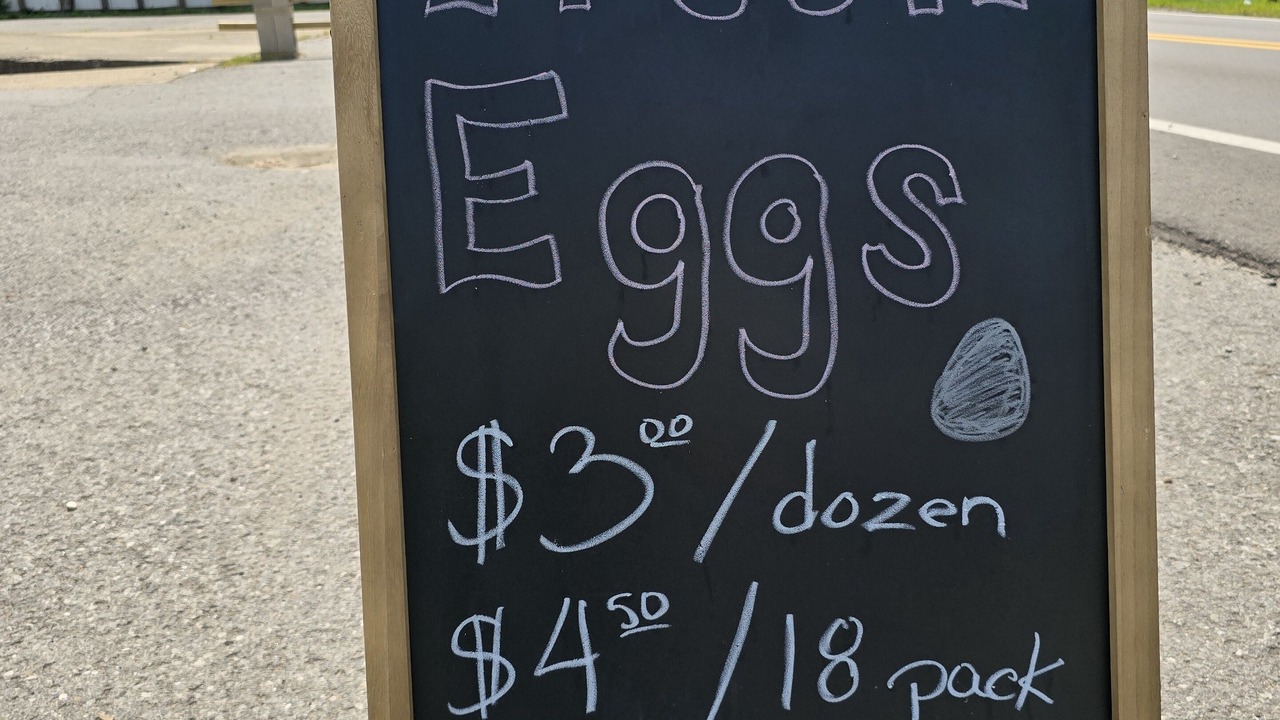 Eggs
$3.00/dozen
$4.50/18 pack